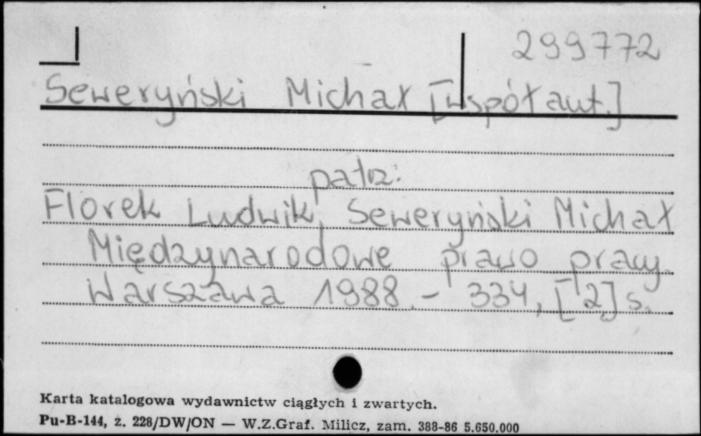 299772
Seweryński Michał [współaut.]
patrz:
Florek Ludwik, Seweryński Michał
Międzynarodowe prawo pracy.
Warszawa 1988. - 334, [2] s.
Karta katalogowa wydawnictw ciągłych i zwartych.
Pu-B-144, z. 228/DW/ON — W.Z.Graf. Milicz, zam. 388-86 5.650.000